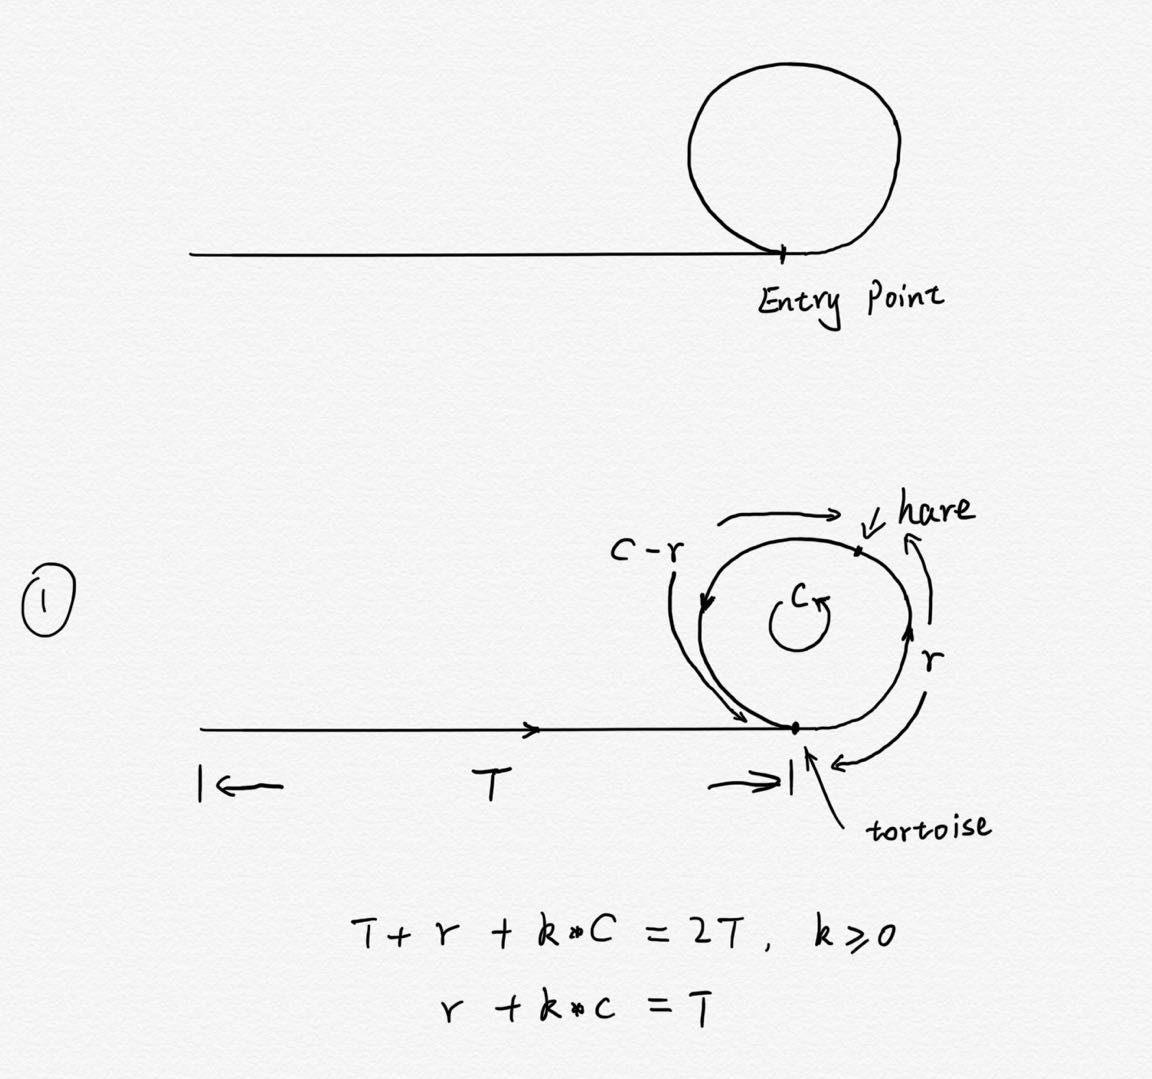 Entry Point
hare
C-r
C
①
r
T
tortoise
T+ r + k*C = 2T, k≥0
r + k*c = T